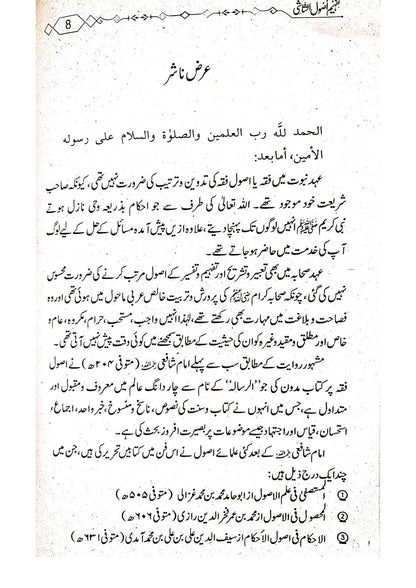 تفہیم اُصول الشاشی
8
عرض ناشر
الحمد للّٰہ رب العلمین والصلوٰۃ والسلام علی رسولہ
الأمین، أما بعد:
عہد نبوت میں فقہ یا اصول فقہ کی تدوین و ترتیب کی ضرورت نہیں تھی، کیونکہ صاحب
شریعت خود موجود تھے۔ اللہ تعالیٰ کی طرف سے جو احکام بذریعہ وحی نازل ہوتے
نبی کریم ﷺ انہیں لوگوں تک پہنچا دیتے، علاوہ ازیں پیش آمدہ مسائل کے حل کے لیے لوگ
آپ کی خدمت میں حاضر ہو جاتے تھے۔
عہد صحابہ میں بھی تعبیر و تشریح اور تفہیم و تفسیر کے اصول مرتب کرنے کی ضرورت محسوس
نہیں کی گئی، چونکہ صحابہ کرام ﷢ کی پرورش و تربیت خالص عربی ماحول میں ہوئی تھی اور وہ
فصاحت و بلاغت میں مہارت بھی رکھتے تھے، لہٰذا انہیں واجب، مستحب، حرام، مکروہ، عام و
خاص اور مطلق و مقید وغیرہ کو ان کی حیثیت کے مطابق سمجھنے میں کوئی دقت پیش نہیں آتی تھی۔
مشہور روایت کے مطابق سب سے پہلے امام شافعی رحمہ اللہ (متوفی ۲۰۴ھ) نے اصول
فقہ پر کتاب مدون کی جو ”الرسالہ“ کے نام سے چار دانگ عالم میں معروف و مقبول اور
متداول ہے، جس میں انہوں نے کتاب و سنت کی نصوص، ناسخ و منسوخ، خبر واحد، اجماع،
استحسان، قیاس اور اجتہاد جیسے موضوعات پر بصیرت افروز بحث کی ہے۔
امام شافعی رحمہ اللہ کے بعد کئی علمائے اصول نے اس فن میں کتابیں تحریر کی ہیں، جن میں
چند ایک درج ذیل ہیں:
① المستصفیٰ فی علم الاصول از ابو حامد محمد بن محمد غزالی (متوفی ۵۰۵ھ)
② المحصول فی الاصول از محمد بن عمر فخر الدین رازی (متوفی ۶۰۶ھ)
③ الاحکام فی اصول الأحکام از سیف الدین علی بن علی بن محمد آمدی (متوفی ۶۳۱ھ)